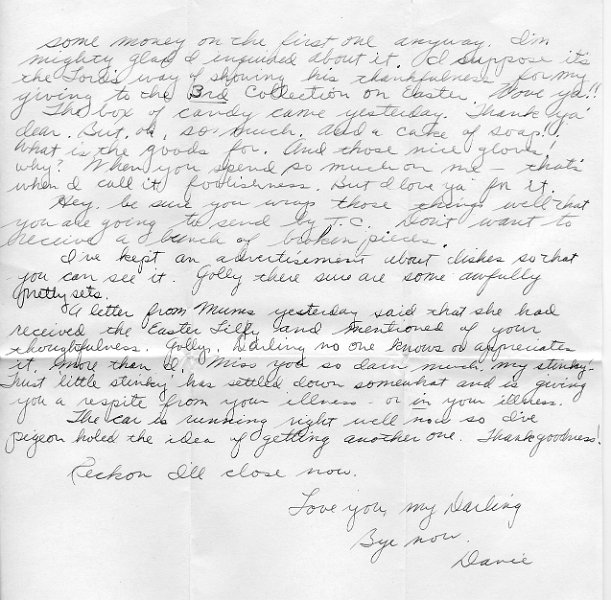 some money on the first one anyway. I'm
mighty glad I inquired about it. I suppose it's
the Lord's way of showing his thankfulness for my
giving to the 3rd Collection on Easter. Love ya!!
The box of candy came yesterday. Thank ya'
dear. But, oh, so much. And a cake of soap!!
What is the goods for. And those nice gloves!
why? When you spend so much on me - that's
when I call it foolishness. But I love ya' for it.
Hey, be sure you wrap those things well that
you are going to send by T.C. Don't want to
receive a bunch of broken pieces.
I've kept an advertisement about dishes so that
you can see it. Golly there sure are some awfully
pretty sets.
A letter from Mums yesterday said that she had
received the Easter Lilly and mentioned of your
thoughtfulness. Golly, Darling no one knows or appreciates
it, more than I. Miss you so darn much, my stinky-
Trust 'little stinky' has settled down somewhat and is giving
you a respite from your illness - or in your illness.
The car is running right well now so I've
pigeon holed the idea of getting another one. Thank goodness!
Reckon I'll close now.
Love you, my Darling
Bye now.
Davie